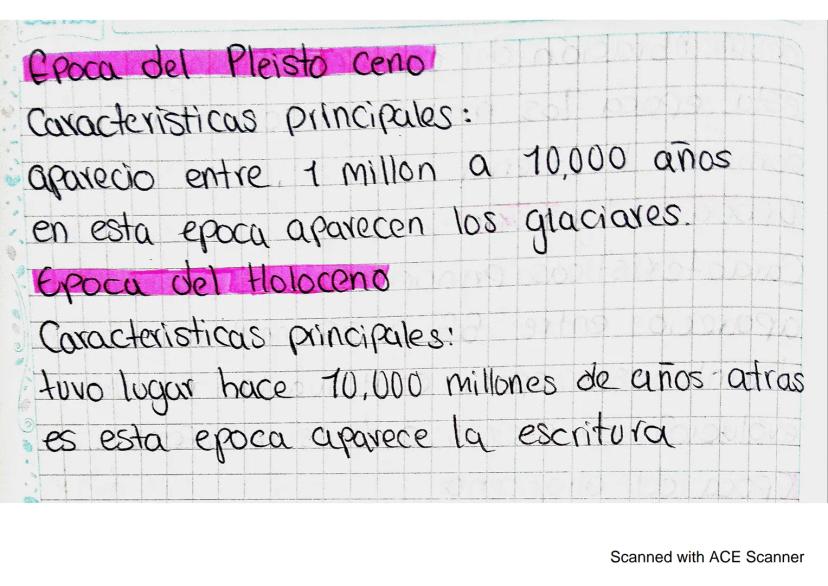 Epoca del Pleisto ceno
Caracteristicas principales:
aparecio entre 1 millon a 10,000 años
en esta epoca aparecen los glaciares.
Epoca del Holoceno
Caracteristicas principales:
tuvo lugar hace 10,000 millones de años atras
es esta epoca aparece la escritura
Scanned with ACE Scanner